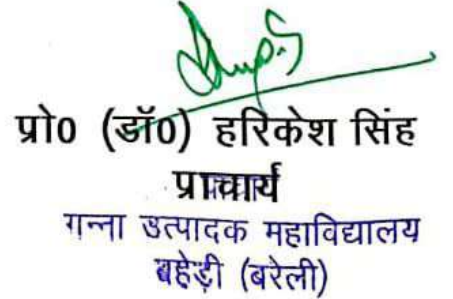 प्रो0 (डॉ0) हरिकेश सिंह
प्राचार्य
गन्ना उत्पादक महाविद्यालय
बहेड़ी (बरेली)